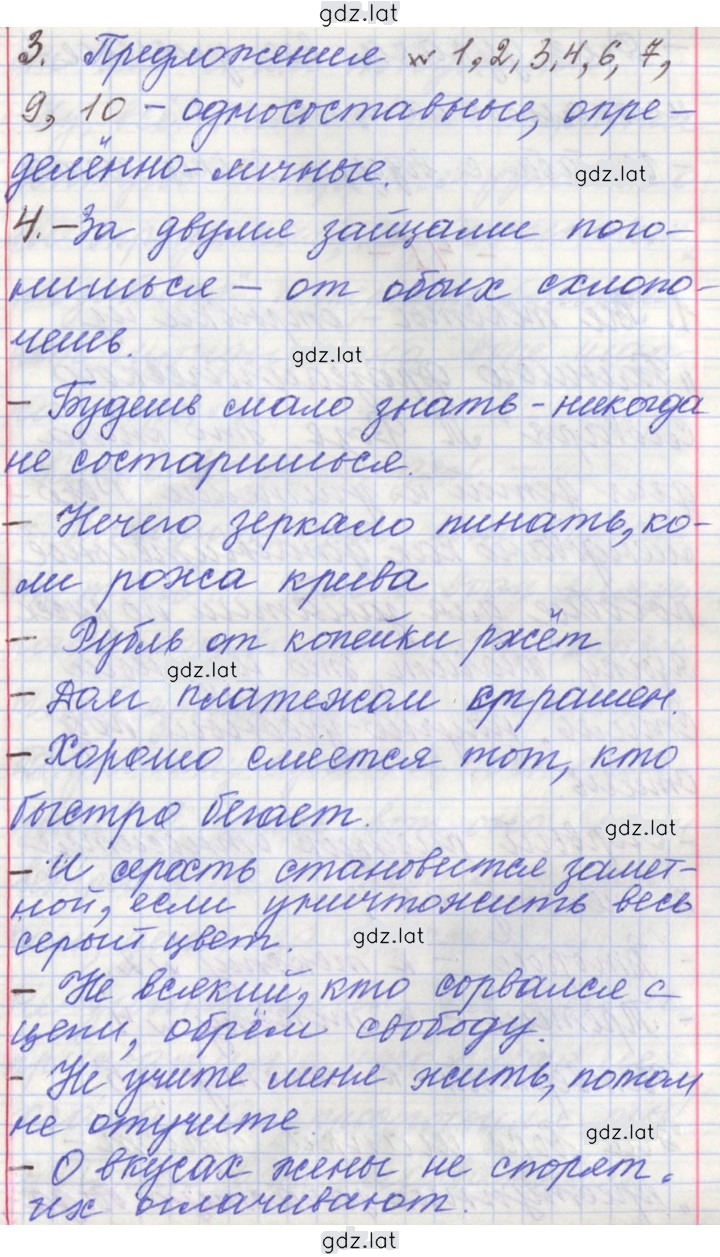 gdz.lat
3. Предложения № 1, 2, 3, 4, 6, 7,
9, 10 – односоставные, опре-
делённо-личные.
gdz.lat
4. – За двумя зайцами пого-
нишься – от обоих схлопо-
чешь.
gdz.lat
– Будешь мало знать – никогда
не состаришься.
– Нечего зеркало пинать, ко-
ли рожа крива
– Рубль от копейки ржёт
gdz.lat
– Дом платежом страшен.
– Хорошо смеется тот, кто
быстро бегает.
gdz.lat
– И серость становится замет-
ной, если уничтожить весь
серый цвет.
gdz.lat
– Не всякий, кто сорвался с
цепи, обрём свободу.
– Не учите меня жить, потом
не отучите
gdz.lat
– О вкусах жены не спорят.
их оплачивают.
gdz.lat